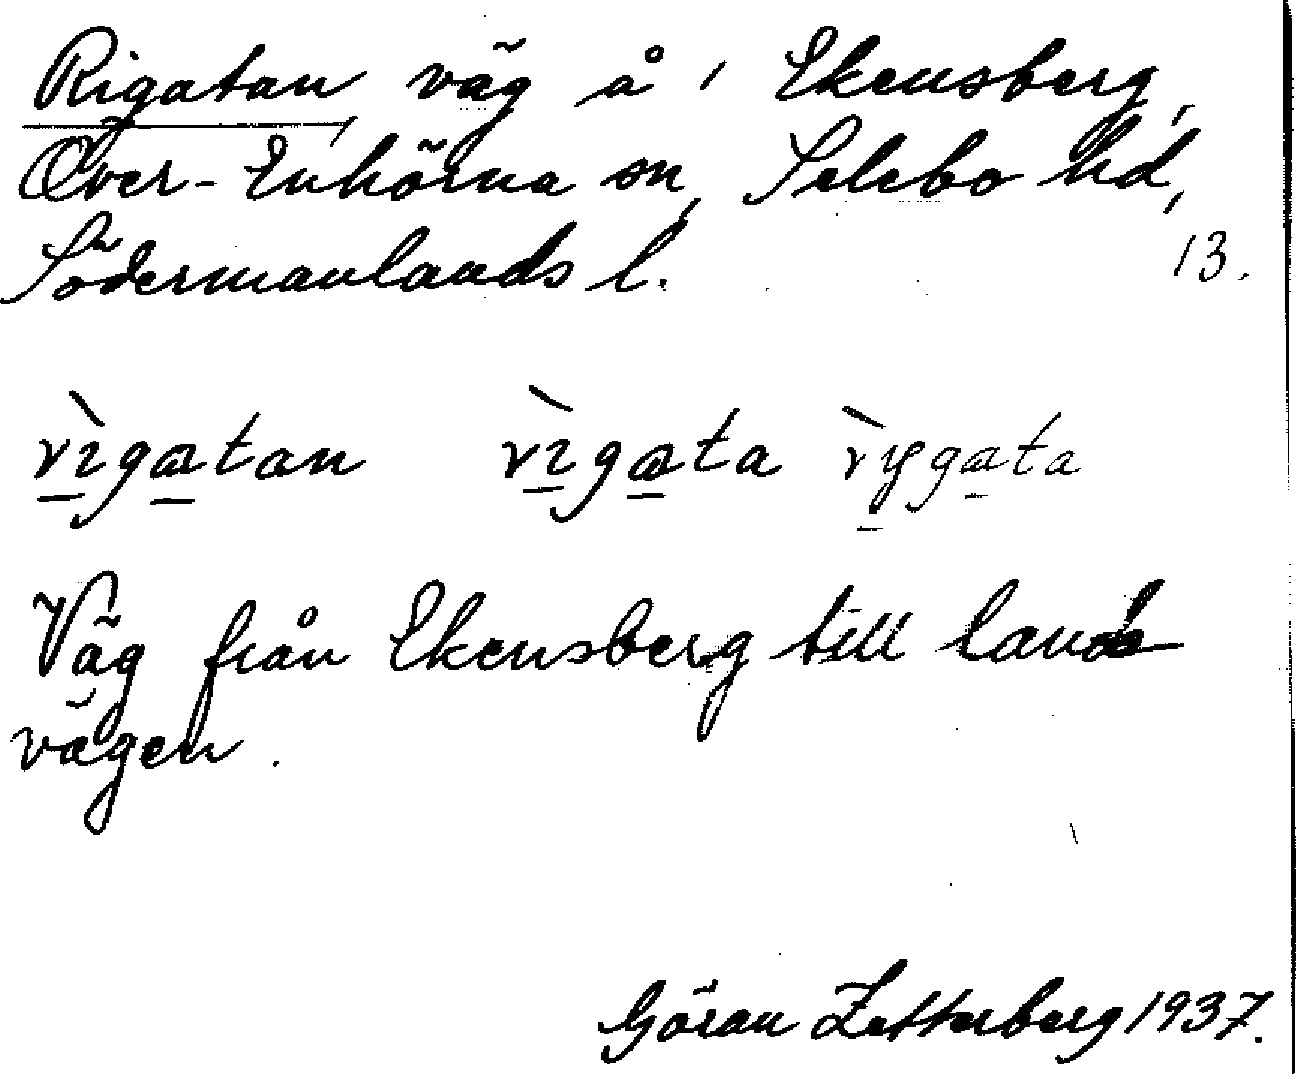 Rigatan, väg å 1 Ekensberg,
Över-Enhörna sn, Selebo hd,
Södermanlands l. 13.
rìgatan rìgata rygata
Väg från Ekensberg till lands-
vägen.
Göran Zetterberg 1937.